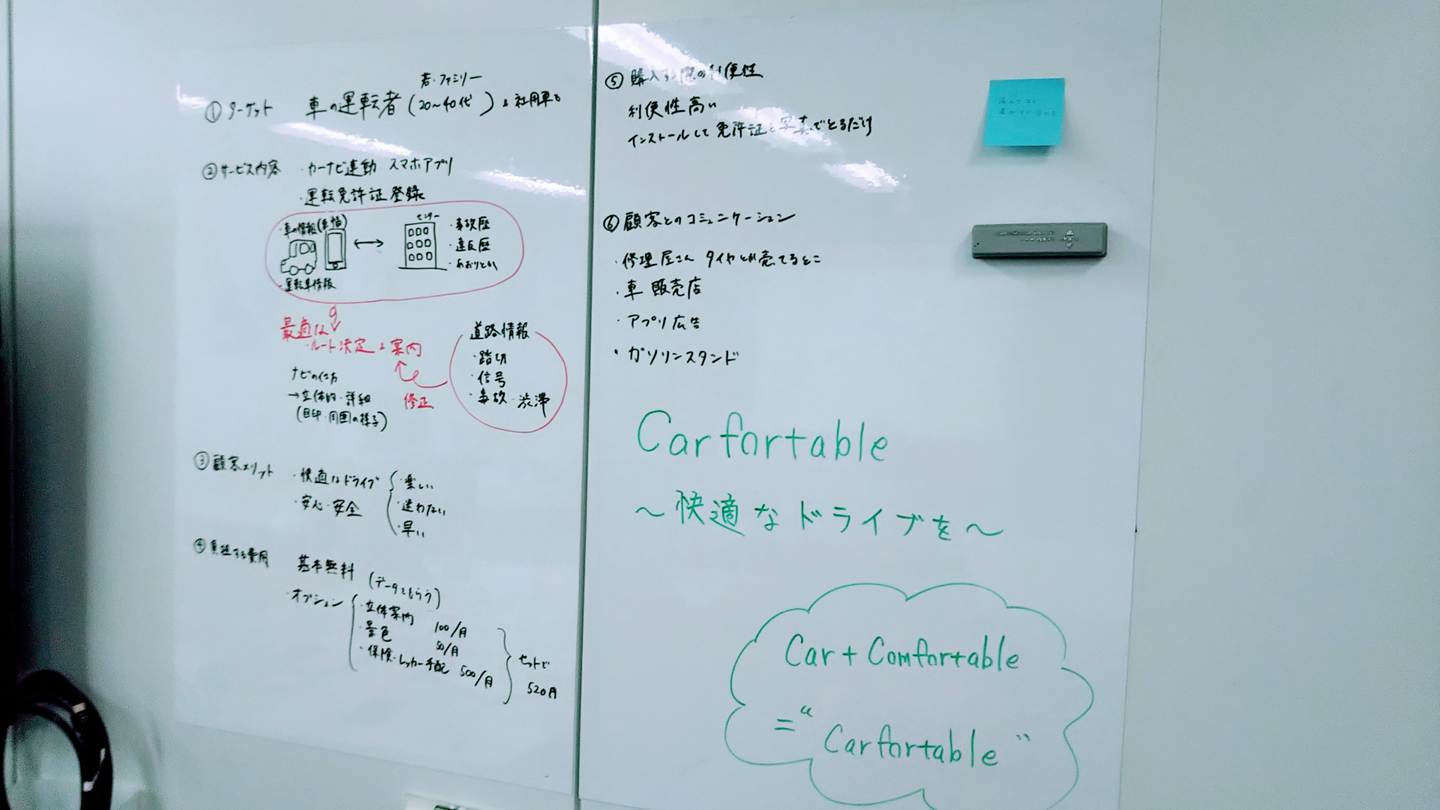 若・ファミリー
① ターゲット 車の運転者(20~40代)
② サービス内容 ・カーナビ連動 スマホアプリ
・運転免許証登録
・車の情報(車種)
・運転車情報
センター
・事故歴
・違反歴
・あおりとか
最適な
・ルート決定と案内
修正
道路情報
・踏切
・信号
・事故・渋滞
ナビの仕方
→立体的・詳細
(目印・周囲の様子)
③ 顧客メリット ・快適なドライブ
・安心・安全
・楽しい
・迷わない
・早い
④ 負担する費用 基本無料
(データをもらう)
・オプション
・立体案内 100/月
・景色 50/月
・保険・レッカー手配 500/月
セットで
520円
⑤ 購入する際の利便性
利便性高い
インストールして免許証を写真でとるだけ
⑥ 顧客とのコミュニケーション
・修理屋さん タイヤとか売ってるとこ
・車 販売店
・アプリ広告
・ガソリンスタンド
Carfortable
~快適なドライブを~
Car+Comfortable
=“Carfortable”